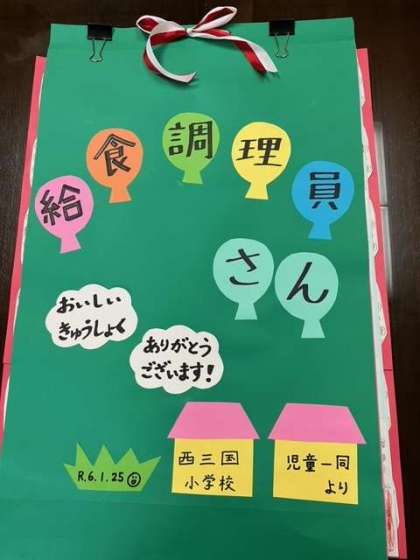 給食調理員
さん
おいしい
きゅうしょく
ありがとう
ございます!
R.6.1.25
西三国
小学校
児童一同
より